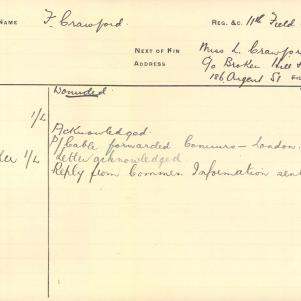 NAME F. Crawford. REG. &C. 11th Field
NEXT OF KIN Miss L. Crawford
ADDRESS c/o Broken Hill
186 Argent St
Wounded.
1/L
Acknowledged.
P/Cable forwarded Commrs – London.
1/L Letter acknowledged.
Reply from Commen Information sent